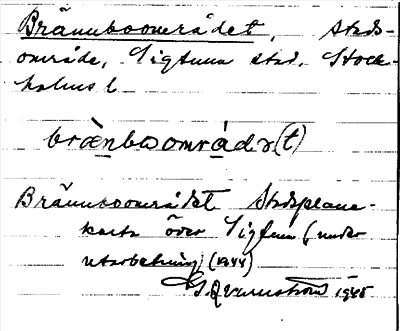 Brännboområdet, stads-
område, Sigtuna stad, Stock-
holms l
brä̀nbωomrǻdə(t)
Brännboområdet Stadsplane-
karta över Sigtuna (under
utarbetning) (1944)
1945